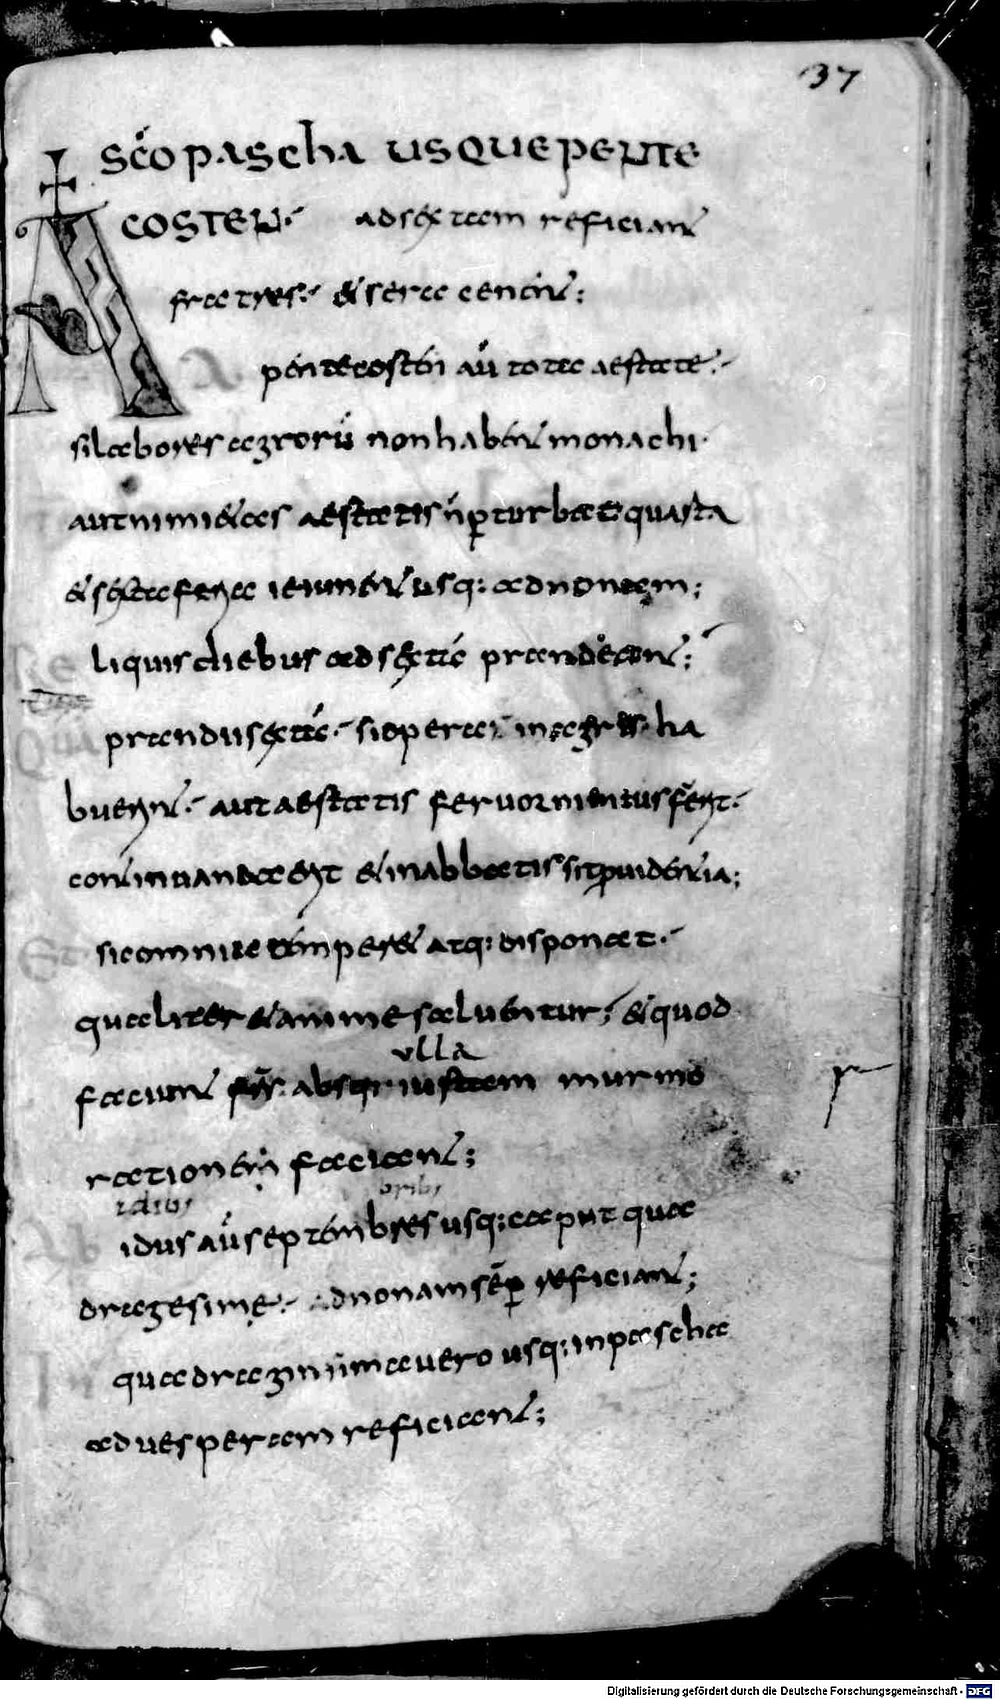 37
A scõ pascha usque pente
costen· ad sextam reficiant
fratres· et sera cenent;
A pentecosten aū tota aestate·
si labores agrorū non habent monachi·
aut nimietas aestatis n̄ perturbat quarta
et sexta feria ieiunent usq: ad nonam;
Re liquis diebus ad sextā prandeant;
Qua prandii sextā· si opera in agris ha
buerint· aut aestatis fervor nimius fuerit·
continuanda erit et in abbatis sit providentia;
Et sic omnia temperet atq: disponat·
qualiter et animae salventur; et quod
faciunt frs· absq: iustam murmo
ulla
rationem faciant;
idib; orib;
Ab idus aū septembres usq: caput qua
dragesime· ad nonam semp reficiant;
In quadragissima vero usq: in pascha
ad vesperam reficiant;
Digitalisierung gefördert durch die Deutsche Forschungsgemeinschaft - DFG